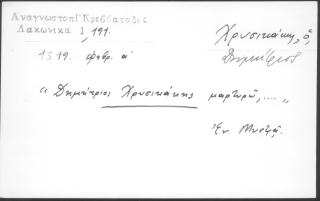 Ἀναγνωστοπ Γ Κρεββαταδες
Λακωνικα 1, 191.
Χρυσικάκης, ὁ,
Δημήτριος
1519. φηβρ. α΄
" Δημήτριος Χρυσικάκης μαρτυρῶ, .... "
Ἐν Μυστρᾷ.